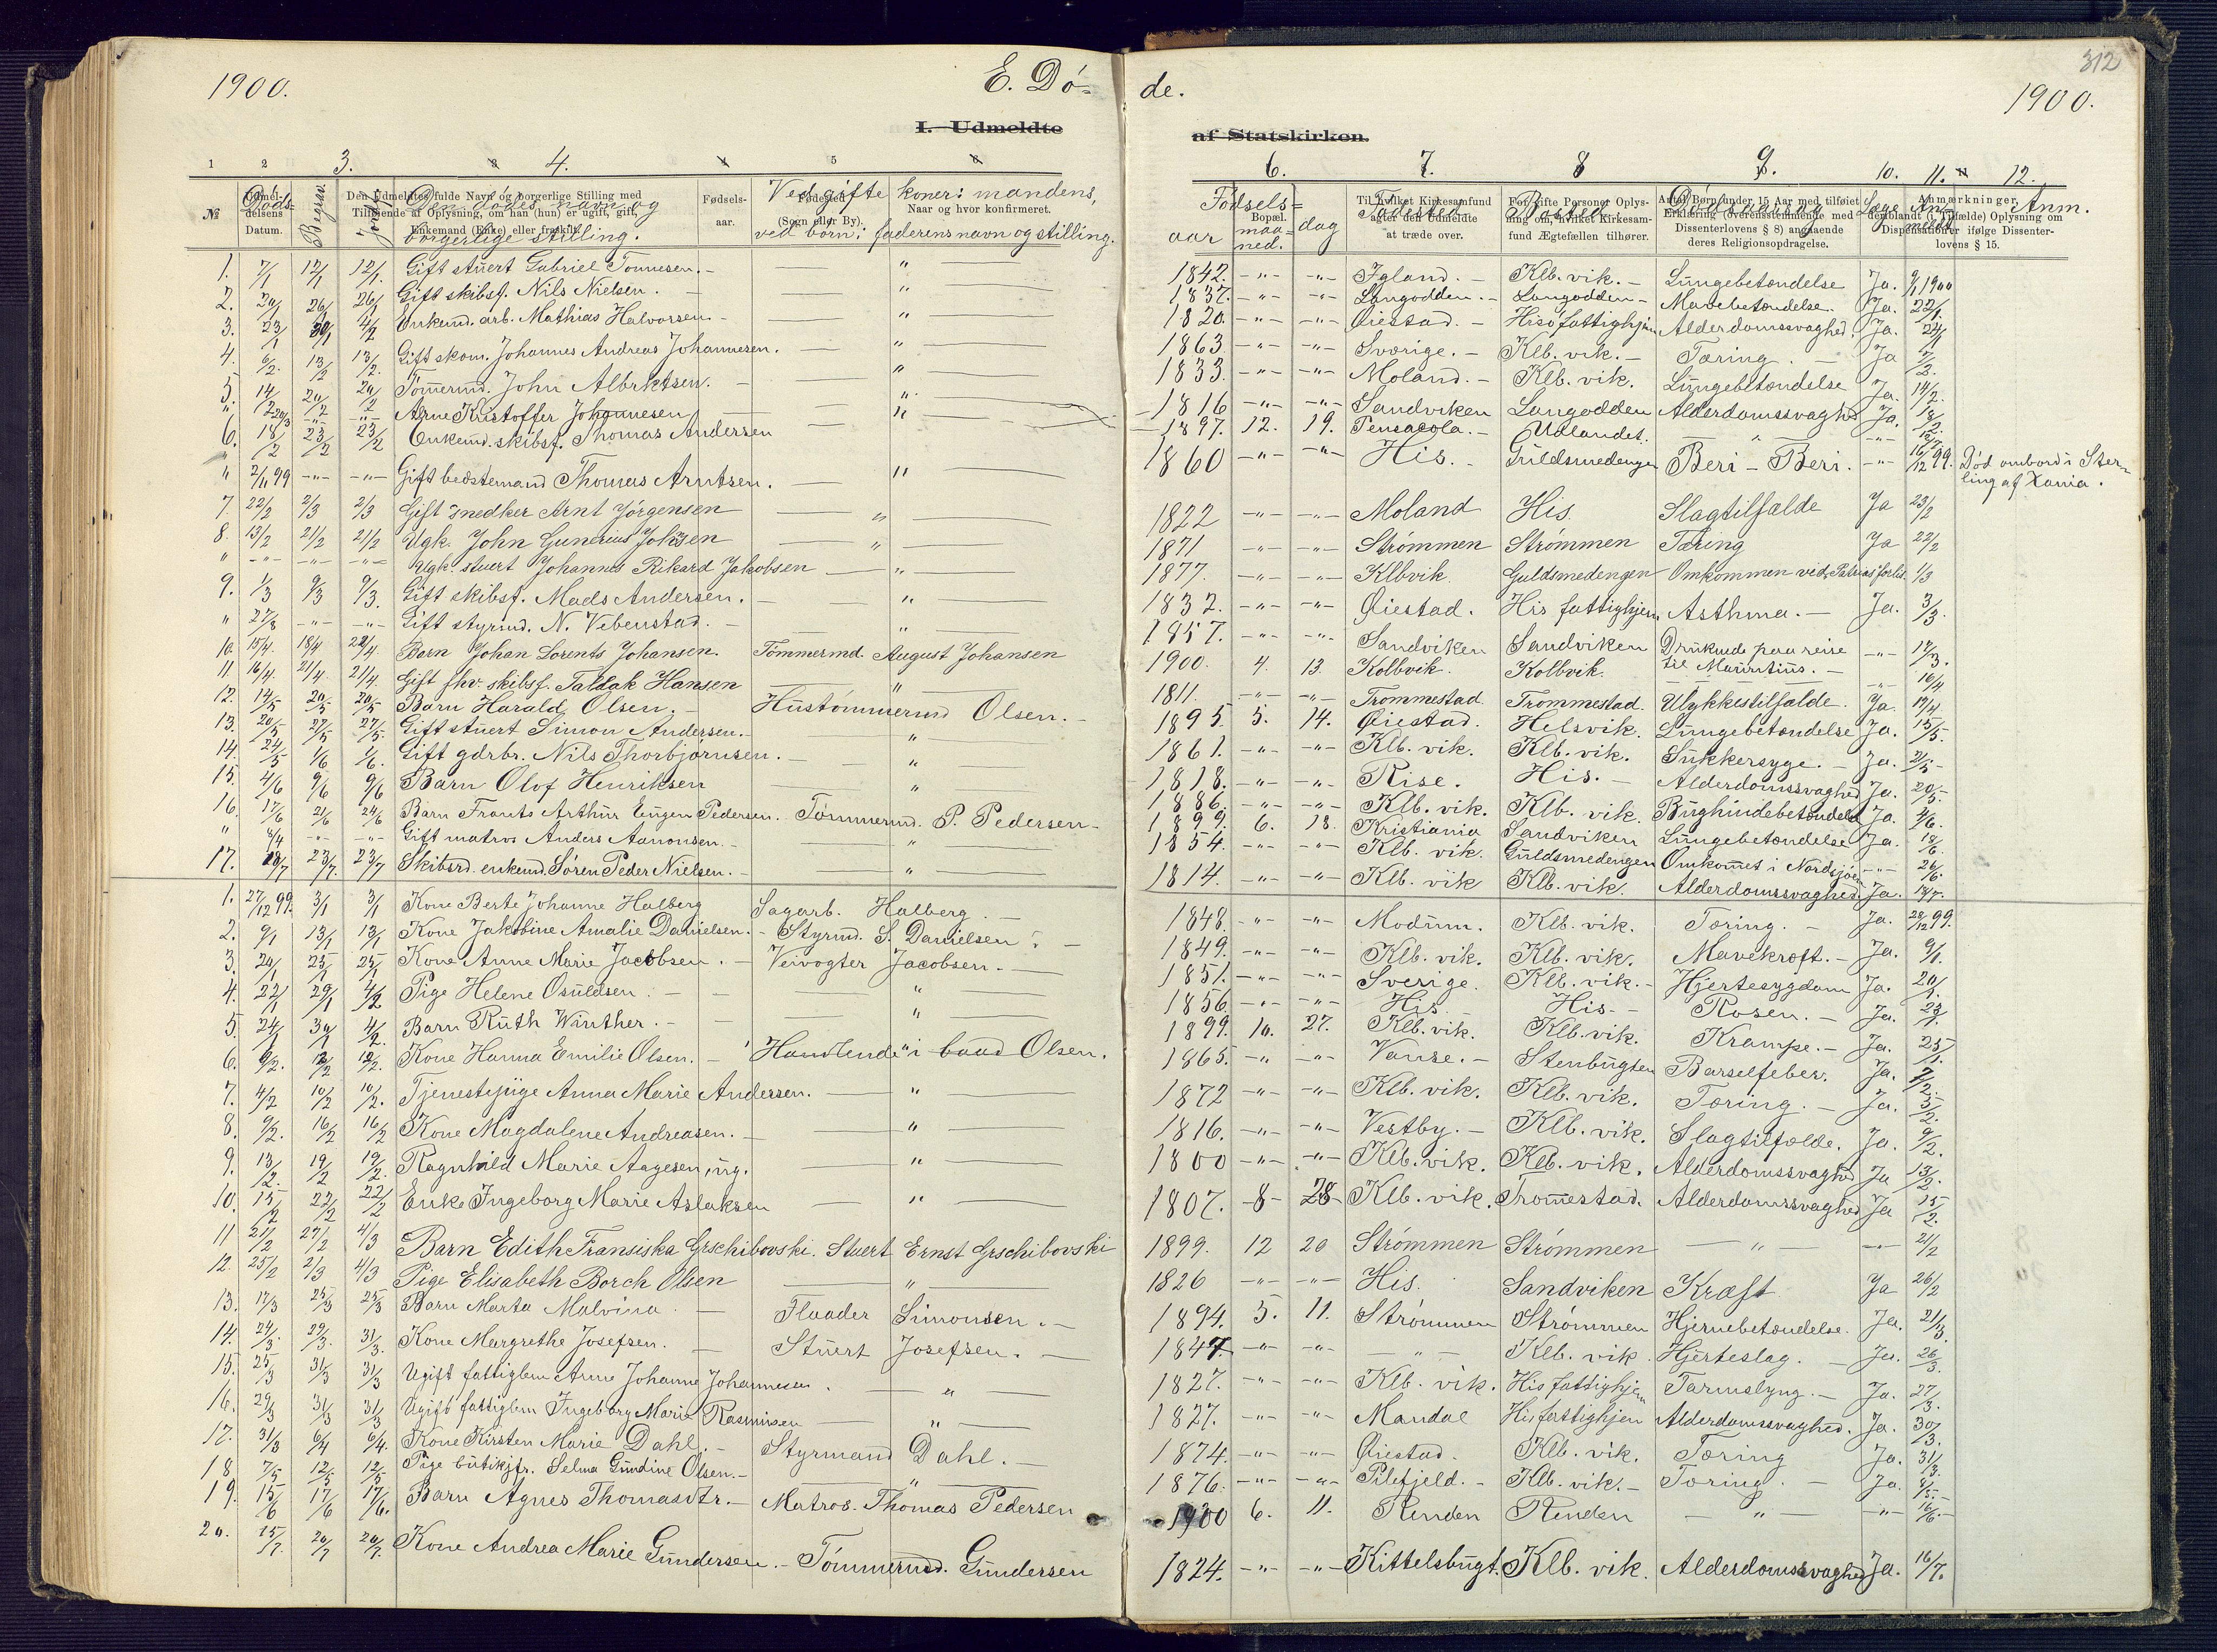 312
1900. E. Dø- de. 1900.
I. Udmeldte af Statskirken.
1 2 3. 4. 5 6. 7. 8 9. 10. 11. 12.
№ Døds- Datum. Begrav. Jordf. Den dødes navn og borgerlige stilling. Ved gifte koner: mandens, ved børn: faderens navn og stilling. Fødsels- aar maaned. dag Fødested Bosted Dødsaarsag Læge Anmeldt Anm.
1. 7/1 12/1 12/1 Gift stuert Gabriel Tønnesen. — " — 1842. -"- -"- Igland. - Klb. vik. - Lungebetændelse Ja. 9/1 1900
2. 20/1 26/1 26/1 Gift skibsf. Nils Nielsen. — " — 1837. -"- -"- Langodden. - Langodden - Mavebetændelse. Ja. 22/1.
3. 23/1 30/1 4/2 Enkemd. arb. Mathias Halvorsen. — " — 1820. -"- -"- Øiestad. - Hisø fattighjem Alderdomssvaghed. Ja. 24/1
4. 6/2. 13/2 13/2. Gift skom. Johannes Andreas Johannesen. — " — 1863. -"- -"- Sverige. - Klb. vik. - Tæring. - Ja 7/2.
5. 14/2 20/2 20/2 Tømermd. John Albrktsen. — " — 1833. -"- -"- Moland. - Klb. vik. Lungebetændelse Ja. 14/2.
" Arne Kristoffer Johannesen — " — 1816 -"- -"- Sandviken Langodden Alderdomssvaghed Ja. 18/2.
6. 18/2 23/2 23/2 Enkemd. skibsf. Thomas Andersen — " — 1897. 12. 19. Pensacola. - Udlandet. — " — -"-
" 2/11 99 -"- -"- Gift bedstemand Thomas Arntsen. — " — 1860 -"- -"- His. - Guldsmedengen Beri - Beri. -"- 16/12 99. Død ombord i Ster-
ling af Xania.
7. 22/2 2/3 2/3 Gift snedker Arnt Jørgensen — " — 1822 -"- -"- Moland His. Slagtilfælde Ja 23/2
8. 13/2 21/2 21/2 Ugk. John Gunerius Johnsen — " — 1871 -"- -"- Strømmen Strømmen Tæring Ja 22/2
" -"- -"- -"- Ugk. stuert Johannes Rikard Jakobsen — " — 1877. -"- -"- Klbvik. Guldsmedengen Omkommen ved Patrias forlis. 1/3
9. 1/3 9/3 9/3. Gift skibsf. Mads Andersen. — " — 1832. -"- -"- Øiestad. His fattighjem Asthma. - Ja. 3/3.
" 27/8 -"- -"- Gift styrmd. N. Vebenstad. — " — 1857. -"- -"- Sandviken Sandviken Druknede paa reise til Mauritius. - -"- 17/3.
10. 15/4. 18/4 22/4. Barn Johan Lorents Johansen. Tømmermd. August Johansen 1900. 4. 13. Kolbvik. Kolbvik. — -"- 16/4
11. 16/4. 21/4. 21/4. Gift fhv. skibsf. Tallak Hansen — " — 1811. -"- -"- Trommestad Trommestad. Ulykkestilfælde. Ja. 17/4.
12. 14/5 20/5 20/5 Barn Harald Olsen. - Hustømmermd Olsen. - 1895. 5. 14. Øiestad. Helsvik. Lungebetændelse Ja. 15/5.
13. 20/5 27/5 27/5. Gift stuert Simon Andersen. — " — 1861. -"- -"- Klb. vik. Klb. vik. Sukkersyge. - Ja. 21/5 -
14. 24/5 1/6 1/6. Gift gdrbr. Nils Thorbjørnsen. — " — 1818. -"- -"- Rise. His. - Alderdomssvaghed Ja. 20/5.
15. 4/6 9/6 9/6 Barn Olof Henriksen — " — 1886. -"- -"- Klb. vik. Klb. vik. Bughindebetændelse Ja. 4/6.
16. 17/6 21/6 24/6 Barn Frants Arthur Eugen Pedersen. Tømmermd. P. Pedersen - 1899. 6. 18. Kristiania Sandviken Lungebetændelse Ja. 18/6.
" 8/4 -"- -"- Gift matros Anders Aanonsen. — " — 1854. -"- -"- Klb. vik. Guldsmedengen Omkomet i Nordsjøen -"- 26/6.
17. 18/7 23/7. 23/7 Skibsrd. enkemd. Søren Peder Nielsen. — " — 1814. -"- -"- Klb. vik Klb. vik. Alderdomssvaghed. Ja. 18/7.
1. 27/12 99. 3/1 3/1 Kone Berte Johanne Halberg Sagarb. Halberg. — 1848. -"- -"- Modum. Klb. vik. Tæring. - Ja. 28/12 99.
2. 9/1 13/1 13/1 Kone Jakobine Amalie Danielsen. - Styrmd. S. Danielsen. - 1849. -"- -"- Klb. vik. Klb. vik. Mavekræft. - Ja. 9/1.
3. 20/1 25/1 25/1 Kone Anne Marie Jacobsen. - Veivogter Jacobsen. - 1851. -"- -"- Sverige. Klb. vik. - Hjertesygdom Ja. 20/1.
4. 22/1 29/1 4/2 Pige Helene Osuldsen. - — " — 1856. -"- -"- His His. - Rosen. - Ja. 23/1.
5. 24/1 30/1 4/2. Barn Ruth Winther. - — " — 1899. 10. 27. Klb. vik. Klb. vik. Krampe. - Ja. 25/1.
6. 9/2. 12/2 12/2. Kone Hanna Emilie Olsen. - Handlende i baad Olsen. 1865. -"- -"- Vanse. - Stenbugten Barselfeber. Ja. 7/2.
7. 4/2 10/2 10/2. Tjenestepige Anna Marie Andersen. — " — 1872 -"- -"- Klb. vik. Klb. vik. Tæring. - Ja. 5/2.
8. 9/2. 16/2 16/2 Kone Magdalene Andreasen. — " — 1816. -"- -"- Vestby. - Klb. vik. Slagtilfælde. Ja. 9/2.
9. 13/2. 19/2 19/2. Ragnhild Marie Aagesen, ug. — " — 1800 -"- -"- Klb. vik. Klb. vik. Alderdomssvaghed Ja 13/2.
10. 15/2 22/2 22/2 Enke Ingeborg Marie Aslaksen — " — 1807. -8- 28- Klb. vik. Tromestad. Alderdomssvaghed Ja 15/2.
11 21/2 27/2 4/3 Barn Edith Fransiska Grschibovski. Stuert Ernst Grschibovski 1899. 12 20 Strømmen Strømmen — " — -"- 21/2
12. 25/2 2/3 4/3 Pige Elisabeth Borch Olsen — " — 1826 -"- -"- His. Sandviken Kræft Ja 26/2
13. 17/3 25/3 25/3 Barn Marta Malvina. - Flaader Simonsen. - 1894. 5. 11. Strømmen Strømmen Hjernebetændelse. Ja. 21/3.
14. 24/3. 29/3. 31/3. Kone Margrethe Josefsen. - Stuert Josefsen. - 1847. -"- -"- — " — Klb. vik. Hjerteslag. - Ja. 26/3.
15. 25/3 31/3 31/3 Ugift fattiglem Anne Johanne Johannesen. — " — 1827. -"- -"- Klb. vik. His fattighjem Tarmslyng. - Ja. 27/3.
16. 29/3 31/3 31/3 Ugift fattiglem Ingeborg Marie Rasmusen — " — 1827. -"- -"- Mandal His fattighjem Alderdomssvaghed. Ja. 30/3.
17. 31/3 6/4 6/4. Kone Kirsten Marie Dahl. - Styrmand Dahl. - 1874. -"- -"- Øiestad. Klb. vik. Tæring Ja. 31/3.
18. 7/5 12/5 12/5 Pige butikjfr. Selma Gundine Olsen. - — " — 1876. -"- -"- Pilefjeld. - Klb. vik. - Tæring. - Ja. 8/5. -
19. 15/6 17/6 17/6. Barn Agnes Thomasdtr. - Matros. Thomas Pedersen 1900 6. 11. Renden Renden — " — -"- 16/6. -
20. 15/7. 20/7 20/7. Kone Andrea Marie Gundersen. - Tømmermd. Gundersen 1824. -"- -"- Kittelsbugt. Klb. vik. Alderdomssvaghed Ja. 16/7.